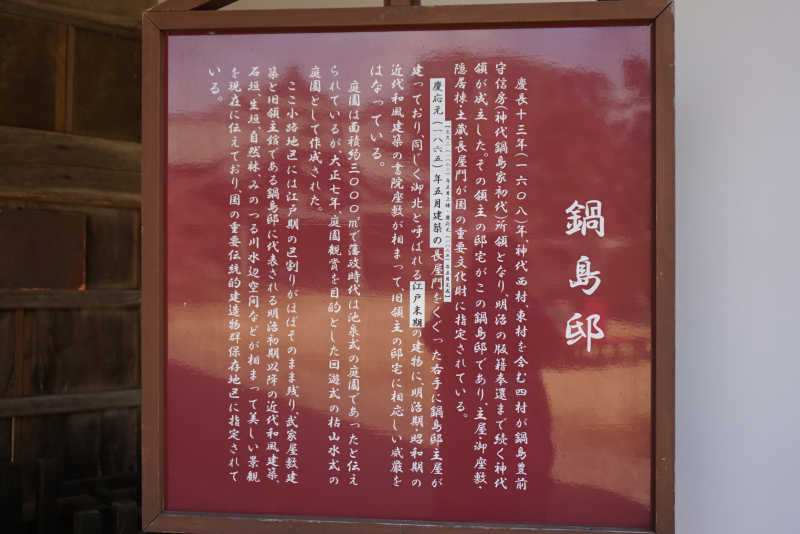 鍋島邸
慶長十三年(一六〇八)年神代西村、東村を含む四村が鍋島豊前
守信房(神代鍋島家初代)所領となり明治の版籍奉還まで続く神代
領が成立した。その領主の邸宅がこの鍋島邸であり、主屋・御座敷・
隠居棟・土蔵・長屋門が国の重要文化財に指定されている。
慶応元(一八六五)年五月建築の長屋門をくぐった右手に鍋島邸主屋が
建っており、同じく御北と呼ばれる江戸末期の建物に、明治期・昭和期の
近代和風建築の書院座敷が相まって、旧領主の邸宅に相応しい威厳を
はなっている。
庭園は面積約三〇〇〇㎡で藩政時代は池泉式の庭園であったと伝え
られているが大正七年、庭園観賞を目的とした回遊式の枯山水式の
庭園として作成された。
ここ小路地区には江戸期の区割りがほぼそのまま残り、武家屋敷建
築と旧領主館である鍋島邸に代表される明治初期以降の近代和風建築、
石垣、生垣、自然林、みのつる川水辺空間などが相まって美しい景観
を現在に伝えており、国の重要伝統的建造物群保存地区に指定されて
いる。